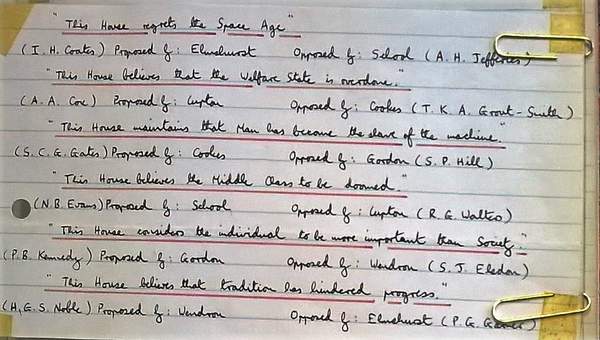 "This House regrets the Space Age"
(I. H. Coates) Proposed by: Elmshurst Opposed by: School (A. H. Jefferies)
"This House believes that the Welfare State is overdone."
(A. A. Cox) Proposed by: Lupton Opposed by: Cookes (T. K. A. Grout-Smith)
"This House maintains that Man has become the slave of the machine."
(S. C. G. Gates) Proposed by: Cookes Opposed by: Gordon (S. P. Hill)
"This House believes the Middle Class to be doomed."
(N. B. Evans) Proposed by: School Opposed by: Lupton (R. G. Walters)
"This House considers the individual to be more important than Society."
(P. B. Kennedy) Proposed by: Gordon Opposed by: Wendron (S. J.
"This House believes that tradition has hindered progress."
(H. G. S. Noble) Proposed by: Wendron Opposed by: Elmshurst (P. G.